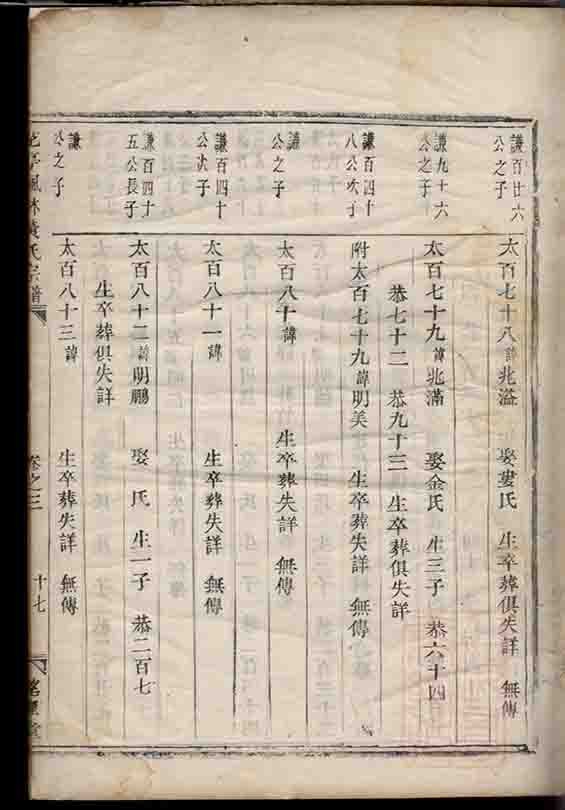 謙百廿六
公之子
太百七十八諱兆溢 娶婁氏 生卒葬俱失詳 無傳
謙九十六
公之子
太百七十九諱兆滿 娶金氏 生三子 恭六十四
恭七十二 恭九十三 生卒葬俱失詳
謙百四十
八公次子
附太百七十九諱明美 生卒葬失詳 無傳
謙
公之子
太百八十諱 生卒葬失詳 無傳
謙百四十
公次子
太百八十一諱 生卒葬失詳 無傳
謙百四十
五公長子
太百八十二諱明鵬 娶 氏 生一子 恭二百七
生卒葬俱失詳
謙
公之子
太百八十三諱 生卒葬失詳 無傳
黃氏宗譜 卷之三 十七